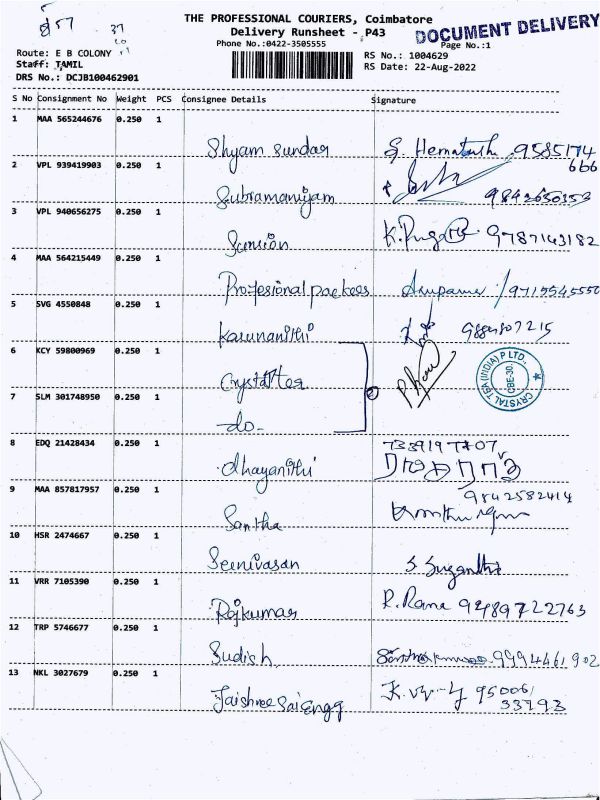 THE PROFESSIONAL COURIERS, Coimbatore
Delivery Runsheet - P43
DOCUMENT DELIVERY
Phone No.:0422-3505555
Page No.:1
57 37
Route: E B COLONY
RS No.: 1004629
Staff: TAMIL
RS Date: 22-Aug-2022
DRS No.: DCJB100462901
S No Consignment No Weight PCS Consignee Details Signature
1 MAA 565244676 0.250 1
Shyam Sundar 9585174
666
2 VPL 939419903 0.250 1
Subramaniyam 9842650353
3 VPL 940656275 0.250 1
Sansion 9787143182
4 MAA 564215449 0.250 1
Professional packers Anupama / 9715545550
5 SVG 4550848 0.250 1
Karunanithi
6 KCY 59800969 0.250 1
Crystal tea
CRYSTAL TEA (INDIA) P LTD., CBE-30.
7 SLM 301748950 0.250 1
do-
8 EDQ 21428434 0.250 1
7339197707
Dhayanithi
9 MAA 857817957 0.250 1
9842582414
Santha
10 HSR 2474667 0.250 1
Seenivasan S. Suganthi
11 VRR 7105390 0.250 1
Rajkumar R. Rama 9489722763
12 TRP 5746677 0.250 1
Sudish 9994461902
13 NKL 3027679 0.250 1
Jaishree Sai Engg 95006
33793